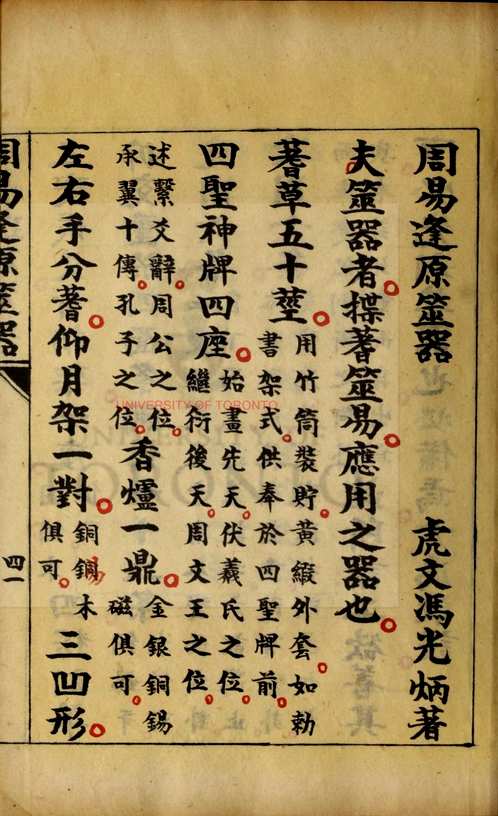 周易逢原筮器　虎文馮光炳著
夫筮器者揲蓍筮易應用之器也
蓍草五十莖用竹筒裝貯黃緞外套如勅
書架式供奉於四聖牌前
四聖神牌四座始畫先天伏羲氏之位
繼衍後天周文王之位
述繫爻辭周公之位
承翼十傳孔子之位香爐一鼎金銀銅錫
磁俱可
左右手分蓍仰月架一對銅錫木
俱可三凹形
周易逢原筮器
四一
UNIVERSITY OF TORONTO